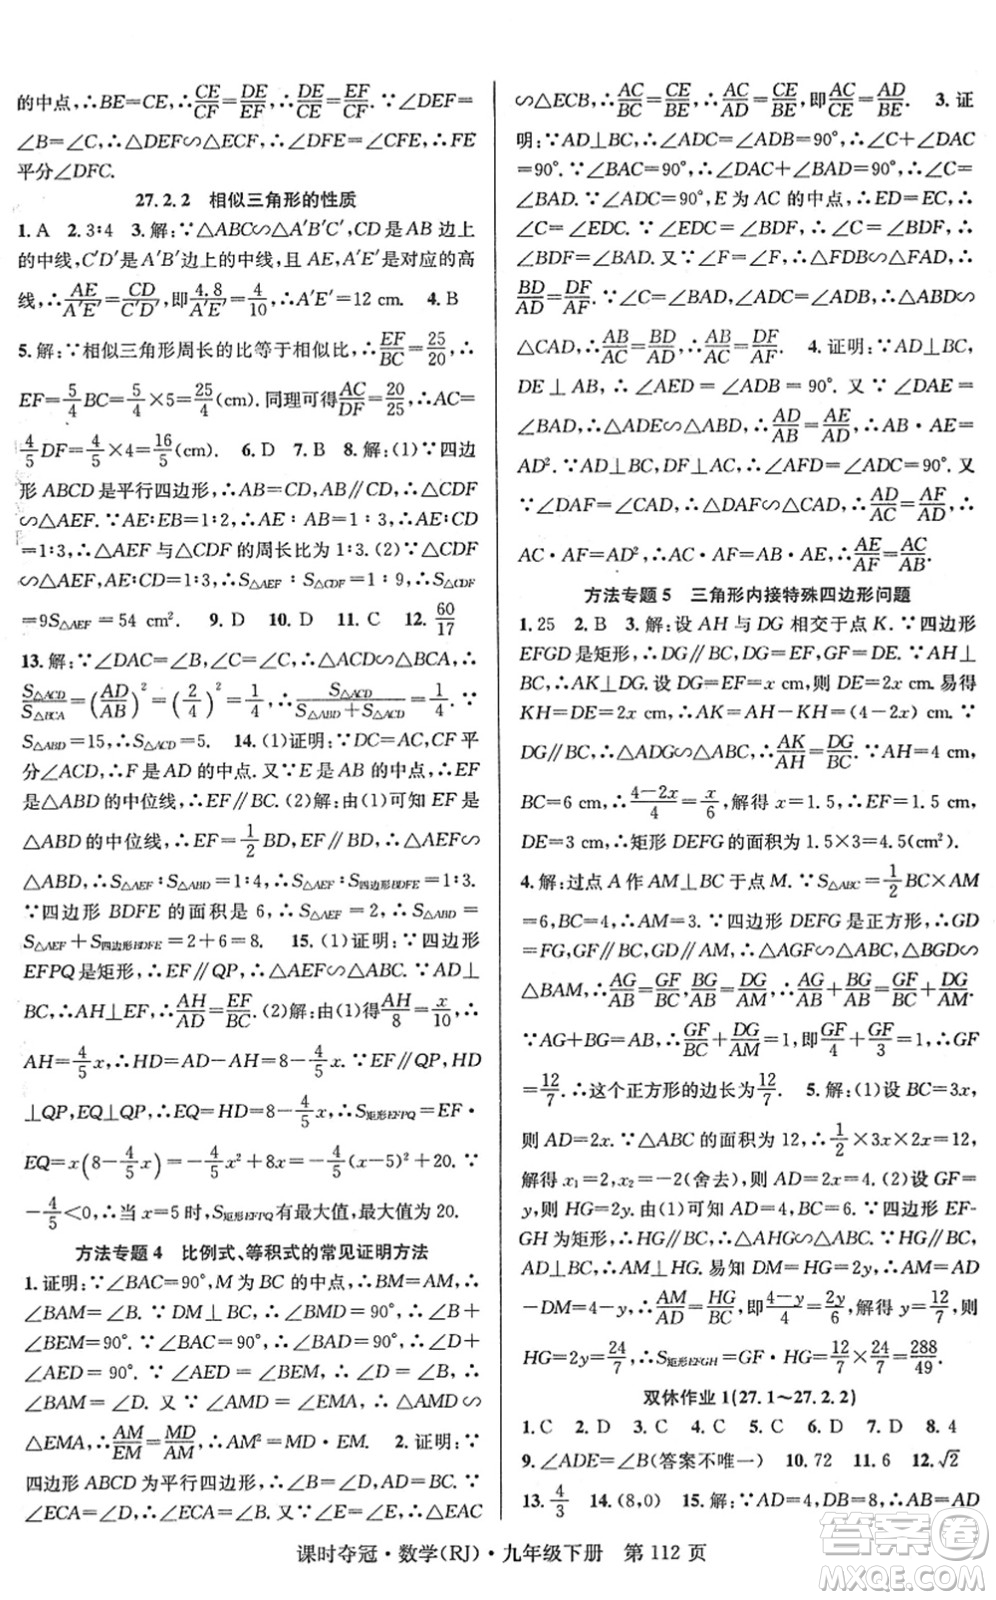 的中点,∴BE=CE,∴CE/CF=DE/EF,∴DE/CE=EF/CF.∵∠DEF=
∠B=∠C,∴△DEF∽△ECF,∴∠DFE=∠CFE,∴FE
平分∠DFC.
27.2.2 相似三角形的性质
1.A 2.3∶4 3.解:∵△ABC∽△A′B′C′,CD是AB边上
的中线,C′D′是A′B′边上的中线,且AE,A′E′是对应的高
线,∴AE/A′E′=CD/C′D′,即4.8/A′E′=4/10,∴A′E′=12 cm. 4.B
5.解:∵相似三角形周长的比等于相似比,∴EF/BC=25/20,∴
EF=5/4BC=5/4×5=25/4(cm).同理可得AC/DF=20/25,∴AC=
4/5DF=4/5×4=16/5(cm). 6.D 7.B 8.解:(1)∵四边
形ABCD是平行四边形,∴AB=CD,AB∥CD,∴△CDF
∽△AEF.∵AE∶EB=1∶2,∴AE∶AB=1∶3,∴AE∶CD
=1∶3,∴△AEF与△CDF的周长比为1∶3.(2)∵△CDF
∽△AEF,AE∶CD=1∶3,∴S△AEF∶S△CDF=1∶9,∴S△CDF
=9S△AEF=54 cm². 9.D 10.D 11.D 12.60/17
13.解:∵∠DAC=∠B,∠C=∠C,∴△ACD∽△BCA,∴
S△ACD/S△BCA=(AD/AB)²=(2/4)²=1/4,∴S△ACD/(S△ABD+S△ACD)=1/4.∵
S△ABD=15,∴S△ACD=5. 14.(1)证明:∵DC=AC,CF平
分∠ACD,∴F是AD的中点.又∵E是AB的中点,∴EF
是△ABD的中位线,∴EF∥BC.(2)解:由(1)可知EF是
△ABD的中位线,∴EF=1/2BD,EF∥BD,∴△AEF∽
△ABD,∴S△AEF∶S△ABD=1∶4,∴S△AEF∶S四边形BDFE=1∶3.
∵四边形BDFE的面积是6,∴S△AEF=2,∴S△ABD=
S△AEF+S四边形BDFE=2+6=8. 15.(1)证明:∵四边形
EFPQ是矩形,∴EF∥QP,∴△AEF∽△ABC.又∵AD⊥
BC,∴AH⊥EF,∴AH/AD=EF/BC.(2)解:由(1)得AH/8=x/10,∴
AH=4/5x,∴HD=AD-AH=8-4/5x.∵EF∥QP,HD
⊥QP,EQ⊥QP,∴EQ=HD=8-4/5x,∴S矩形EFPQ=EF·
EQ=x(8-4/5x)=-4/5x²+8x=-4/5(x-5)²+20.∵
-4/5<0,∴当x=5时,S矩形EFPQ有最大值,最大值为20.
方法专题4 比例式、等积式的常见证明方法
1.证明:∵∠BAC=90°,M为BC的中点,∴BM=AM,∴
∠BAM=∠B.∵DM⊥BC,∴∠BMD=90°,∴∠B+
∠BEM=90°.∵∠BAC=90°,∴∠BAC=90°,∴∠D+
∠AED=90°.∵∠AED=∠BEM,∴∠B=∠D,∴
∠BAM=∠D.又∵∠AMD=∠EMA,∴△AMD∽
△EMA,∴AM/EM=MD/AM,∴AM²=MD·EM. 2.证明:∵
四边形ABCD为平行四边形,∴∠B=∠D,AD∥BC,∴
∠ECA=∠DAC.∵∠ECA=∠D,∴∠ECA=∠B.∵
∠E=∠E,∴△EAC
∽△ECB,∴AC/BC=CE/BE,∵BC=AD,∴AC/AD=CE/BE,即AC/CE=AD/BE. 3.证
明:∵AD⊥BC,∴∠ADB=∠ADC=90°,∴∠C+∠DAC
=90°.∵∠BAC=90°,∴∠BAD+∠DAC=90°,∴∠C=
∠BAD.又∵AD⊥BC,E为AC的中点,∴ED=EC,∴
∠C=∠EDC.∵∠EDC=∠BDF,∴∠C=∠BDF,∴
∠BDF=∠BAD.又∵∠F=∠F,∴△BDF∽△FAD,∴
BD/AD=DF/AF.∵∠C=∠BAD,∠ADC=∠ADB,∴△ABD∽
△CAD,∴AB/AC=BD/AD,∴AB/AC=DF/AF. 4.证明:∵AD⊥BC,
DE⊥AB,∴∠AED=∠ADB=90°.又∵∠DAE=
∠BAD,∴△AED∽△ADB,∴AD/AB=AE/AD,∴AB·AE=
AD².∵AD⊥BC,DF⊥AC,∴∠AFD=∠ADC=90°.又
∵∠DAF=∠CAD,∴△ADF∽△CAD,∴AD/AC=AF/AD,∴
AC·AF=AD²,∴AC·AF=AB·AE,∴AE/AF=AC/AB.
方法专题5 三角形内接特殊四边形问题
1.25 2.B 3.解:设AH与DG相交于点K.∵四边形
EFGD是矩形,∴DG∥BC,DG=EF,GF=DE.∵AH⊥
BC,∴AK⊥DG.设DG=EF=x cm,则DE=2x cm.易得
KH=DE=2x cm,∴AK=AH-KH=(4-2x)cm.∵
DG∥BC,∴△ADG∽△ABC,∴AK/AH=DG/BC.∵AH=4 cm,
BC=6 cm,∴(4-2x)/4=x/6,解得x=1.5,∴EF=1.5cm,
DE=3cm,∴矩形DEFG的面积为1.5×3=4.5(cm²).
4.解:过点A作AM⊥BC于点M.∵S△ABC=1/2BC×AM
=6,BC=4,∴AM=3.∵四边形DEFG是正方形,∴GD
=FG,GF∥BC,GD∥AM,∴△AGF∽△ABC,△BGD∽
△BAM,∴AG/AB=GF/BC,BG/AB=DG/AM,∴AG/AB+BG/AB=GF/BC+DG/AM.
∵AG+BG=AB,∴GF/BC+DG/AM=1,即GF/4+GF/3=1,∴GF
=12/7.∴这个正方形的边长为12/7. 5.解:(1)设BC=3x,
则AD=2x.∵△ABC的面积为12,∴1/2×3x×2x=12,
解得x₁=2,x₂=-2(舍去),则AD=2x=4.(2)设GF=
y,则HG=2y.∵AD⊥BC,∴DM=GF=y.∵四边形EF-
GH为矩形,∴HG∥BC,∴△AHG∽△ABC.∵AD⊥BC,
∴AM⊥HG.易知DM=GF=y,HG=2y,∴AM=AD
-DM=4-y,∴AM/AD=HG/BC,即(4-y)/4=2y/6,解得y=12/7,则
HG=2y=24/7,∴S矩形EFGH=GF·HG=12/7×24/7=288/49.
双休作业1(27.1~27.2.2)
1.C 2.D 3.D 4.C 5.C 6.C 7.D 8.4
9.∠ADE=∠B(答案不唯一) 10.72 11.6 12.√2
13.4/3 14.(8,0) 15.解:∵AD=4,DB=8,∴AB=AD
课时夺冠·数学(RJ)·九年级下册 第112页
答案圈
MXQE.COM